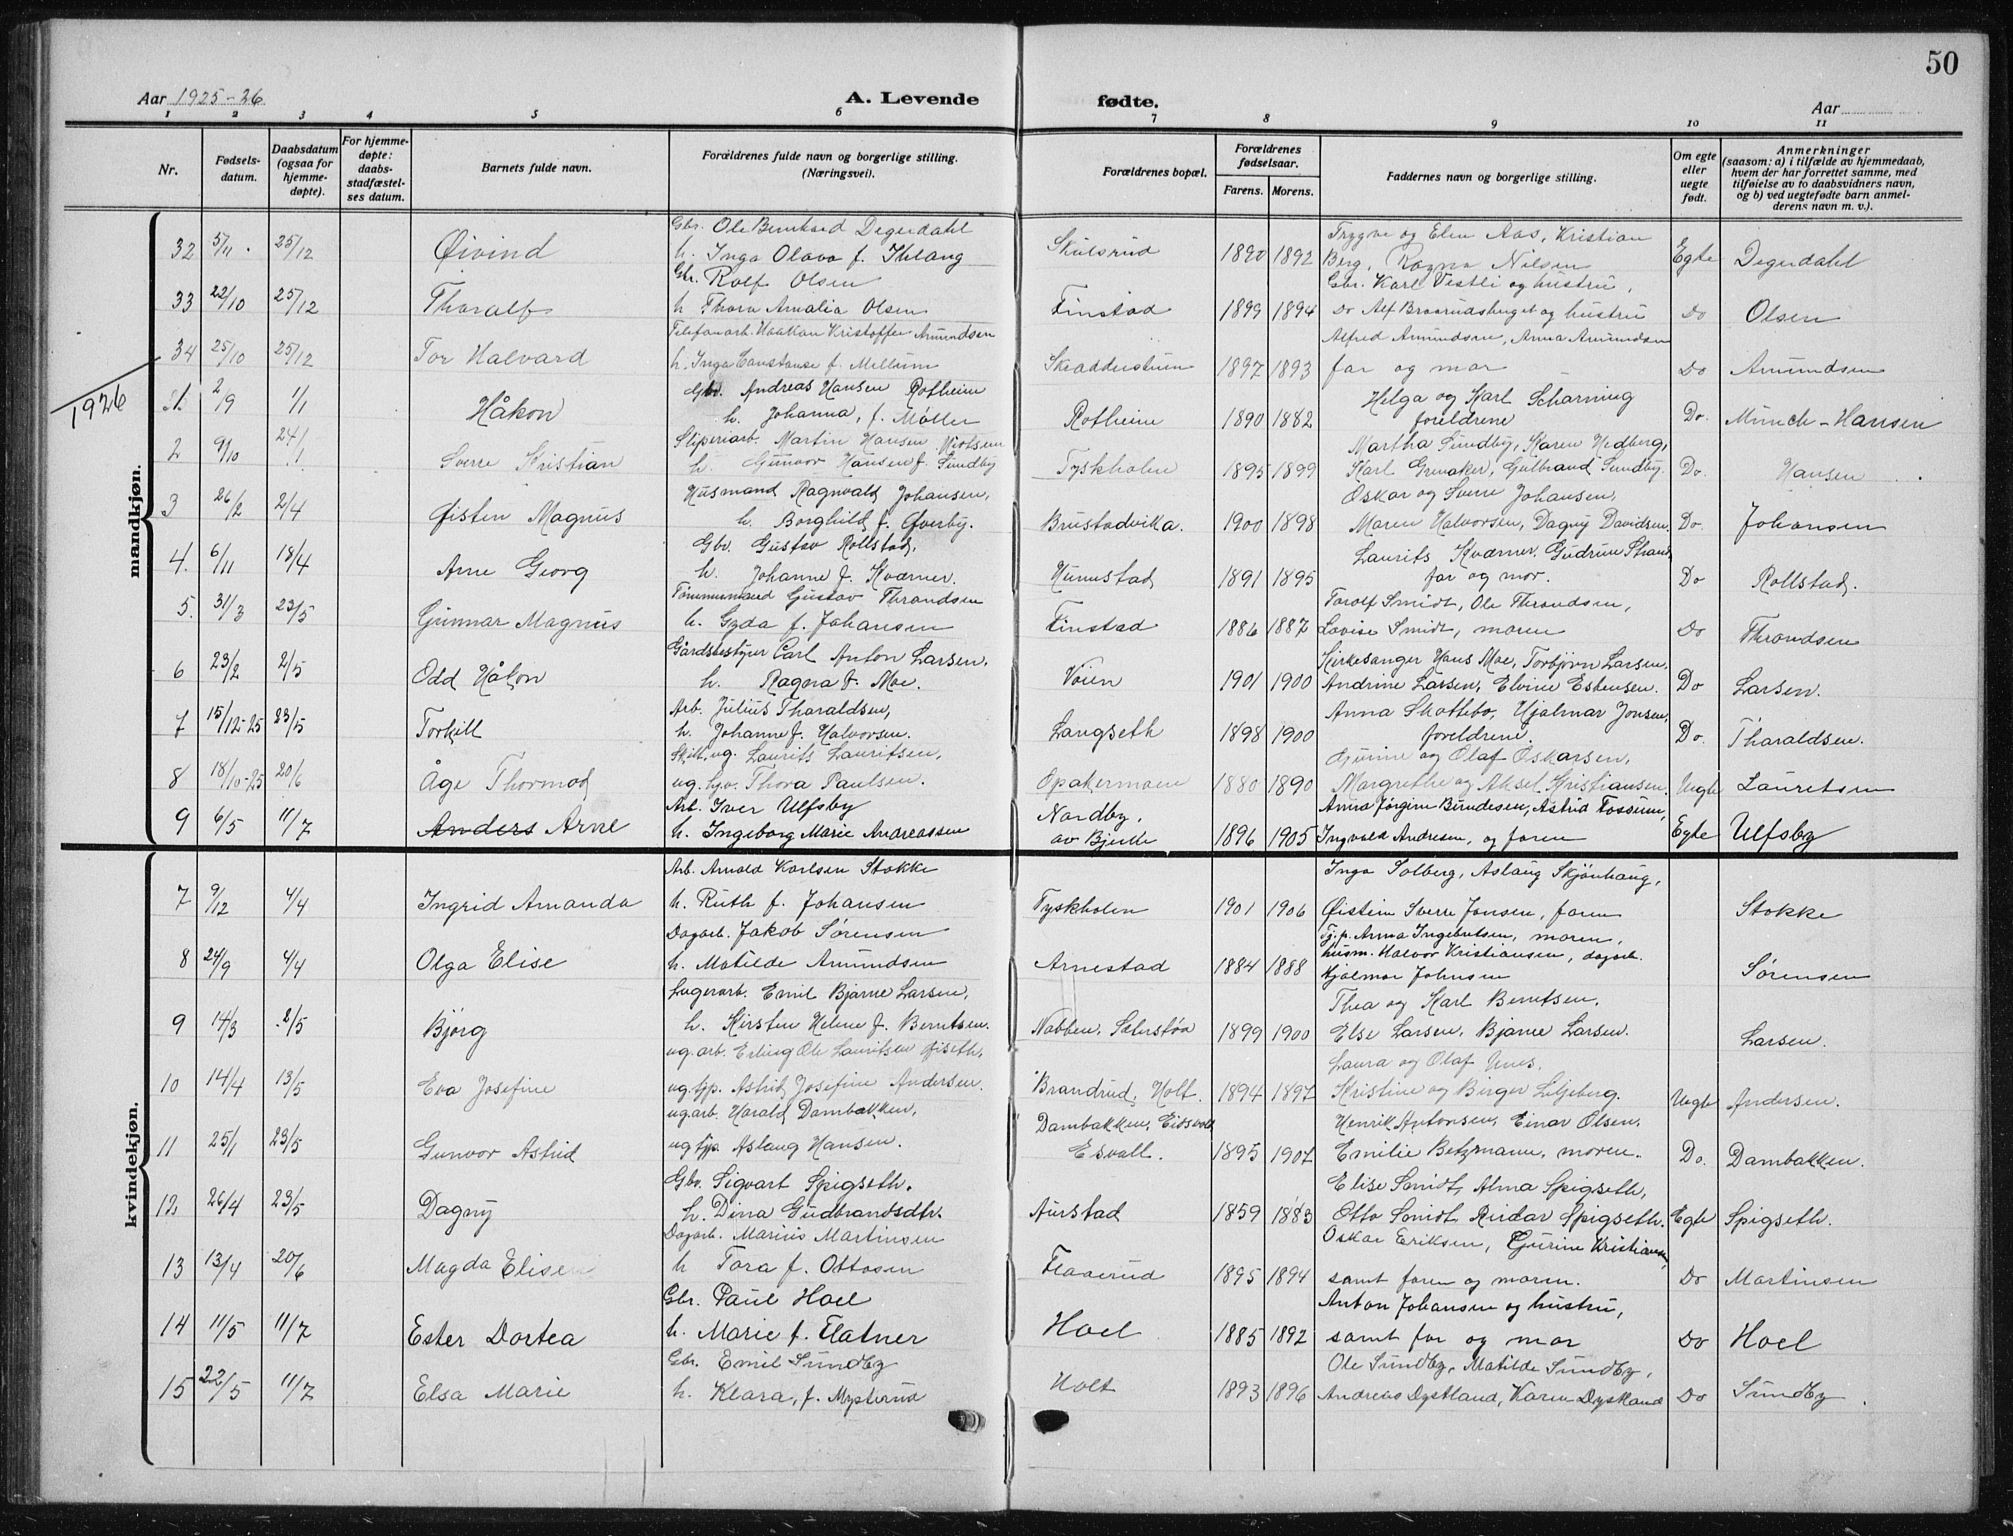 50
Aar 1925-26
A. Levende fødte.
Aar
1 2 3 4 5 6 7 8 9 10 11
Nr.
Fødsels-datum.
Daabsdatum (ogsaa for hjemme-døpte).
For hjemme-døpte: daabs-stadfæstel-ses datum.
Barnets fulde navn.
Forældrenes fulde navn og borgerlige stilling. (Næringsvei).
Forældrenes bopæl.
Forældrenes fødselsaar.
Farens. Morens.
Faddernes navn og borgerlige stilling.
Om egte eller uegte født.
Anmerkninger (saasom: a) i tilfælde av hjemmedaab, hvem der har forrettet samme, med tilføielse av to daabsvidners navn, og b) ved uegtefødte barn anmel-derens navn m. v.).
mandkjøn.
Gbr. Ole Berntsed Degerdahl Trygve og Elen Aas, Kristian
32 5/11 25/12 Øivind h. Inga Olava f. Ihlang Skulsrud 1890 1892 Berg, Ragna Nilsen Egte Degerdahl
Gbr. Rolf Olsen Gbr. Karl Vestli og hustru,
33 22/10 25/12 Thoralf h Thora Amalia Olsen Finstad 1899 1894 Do Alf Braarudsberget og hustru Do Olsen
Telefonarb. Haakon Kristoffer Amundsen Alfred Amundsen, Anna Amundsen
34 25/10 25/12 Tor Halvard h. Inga Constanse f. Mellum Skradderstuen 1897 1893 far og mor Do Amundsen
1926
Gbr. Andreas Hansen Rotheim Helga og Karl Scharning
1. 2/9 1/1 Håkon h. Johanna, f. Møller Rotheim 1890 1882 foreldrene Do. Münch-Hansen
Sliperiarb. Martin Hansen Martha Sundby, Karen Hedberg,
2 9/10 24/1 Sverre Kristian h. Gunvor Hansen f. Sundby Tyskholen 1895 1899 Karl Grinaker, Gulbrand Sundby. Do. Hansen
Husmand Ragnvald Johansen, Oskar og Sverre Johansen,
3 26/2 2/4 Øisten Magnus h. Borghild f. Øverby. Brustadvika. 1900 1898 Maren Halvorsen, Dagny Davidsen. Do. Johansen
Gbr. Gustav Rollstad, Laurits Kværner, Gudrun Strand
4. 6/11 18/4 Arne Georg h. Johanne f. Kværner. Hunnstad 1891 1895 far og mor. Do Rollstad.
Tømmermand Gustav Throndsen Torolf Smidt, Ole Throndsen,
5. 31/3 23/5 Gunnar Magnus h. Gyda f. Johansen Finstad 1886 1887 Lovise Smidt, moren Do Throndsen
Gårdsbestyrer Carl Anton Larsen. Kirkesanger Hans Moe, Torbjørn Larsen,
6 23/2 2/5 Odd Håkon h. Ragna f. Moe. Vøien 1901 1900 Andrine Larsen, Elvine Estensen. Do Larsen.
Arb. Julius Tharaldsen, Anna Skottebo, Hjalmar Jonsen,
7 15/12-25 23/5 Torkill h. Johanne f. Halvorsen. Langseth 1898 1900 foreldrene. Do. Tharaldsen.
Skilt, ug. Laurits Lauritsen, Gurine og Olaf Oskarsen,
8 18/10-25 20/6 Åge Thormod ug. Thora Paulsen. Opakermoen 1880 1890 Margrethe og Aksel Kristiansen. Uegte Lauritsen
Arb. Iver Ulfsby Nordby, Anna Jørgine Bundesen, Astrid Fossum,
9 6/5 11/7 Anders Arne h. Ingeborg Marie Andreassen av Bjerke 1896 1905 Ingvald Andresen, og faren Egte Ulfsby
kvindekjøn.
Arb. Arnold Karlsen Stokke Inga Solberg, Aslaug Skjønhaug,
7 9/12 4/4 Ingrid Amanda h. Ruth f. Johansen Tyskholen 1901 1906 Øistein Sverre Jonsen, faren Stokke
Dagarb. Jakob Sørensen Tj.p. Anna Ingebretsen, moren,
8 24/9 4/4 Olga Elise h. Matilde Amundsen Arnestad 1884 1888 husm. Halvor Kristiansen, dagarb. Hjalmar Johnsen Sørensen
Lagerarb. Emil Bjarne Larsen, Thea og Karl Berntsen.
9 14/3 2/5 Bjørg h. Kirsten Helene f. Berntsen. Nabben, Sæterstøa 1899 1900 Else Larsen, Bjarne Larsen. Larsen.
ug. arb. Erling Ole Lauritsen Øiseth, Laura og Olaf Unes,
10 14/4 13/5 Eva Josefine ug. tjp. Astrid Josefine Andersen. Brandrud, Holt. 1894 1897 Kristine og Birger Liljeberg. Uegte Andersen.
ug arb. Harald Dambakken, Dambakken, Eidsvoll Henrik Antonsen, Einar Olsen,
11 25/1 23/5 Gunvor Astrid ug tjp. Aslaug Hansen. Esvall. 1895 1907 Emilie Betzmann, moren. Do. Dambakken.
Gbr. Sigvart Spigseth. Elise Smidt, Alma Spigseth,
12 26/4 23/5 Dagny h. Dina Gudbrandsdtr. Aurstad 1859 1883 Otto Smidt, Reidar Spigseth. Egte Spigseth.
Dagarb. Marius Martinsen Oskar Eriksen, Gurine Kristiansen,
13 13/4 20/6 Magda Elise h Tora f. Ottosen Flaaerud 1895 1894 samt faren og moren. Do Martinsen
Gbr. Paul Hoel Anton Johansen og hustru,
14 11/5 11/7 Ester Dortea h. Marie f. Flatner Hoel 1885 1892 samt far og mor Do Hoel
Gbr. Emil Sundby Ole Sundby, Matilde Sundby,
15 22/5 11/7 Elsa Marie h. Klara, f. Mysterud Holt 1893 1896 Andreas Dystland, Karen Dystland Do Sundby